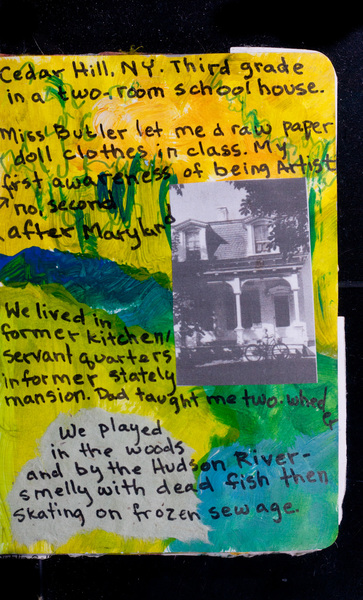 Cedar Hill, NY. Third grade
in a two-room school house.
Miss Butler let me draw paper
doll clothes in class. My
first awareness of being Artist
no, second
after Maryland
We lived in
former kitchen/
servant quarters
in former stately
mansion. Dad taught me two-wheeler
We played
in the woods
and by the Hudson River-
smelly with dead fish then
skating on frozen sewage.